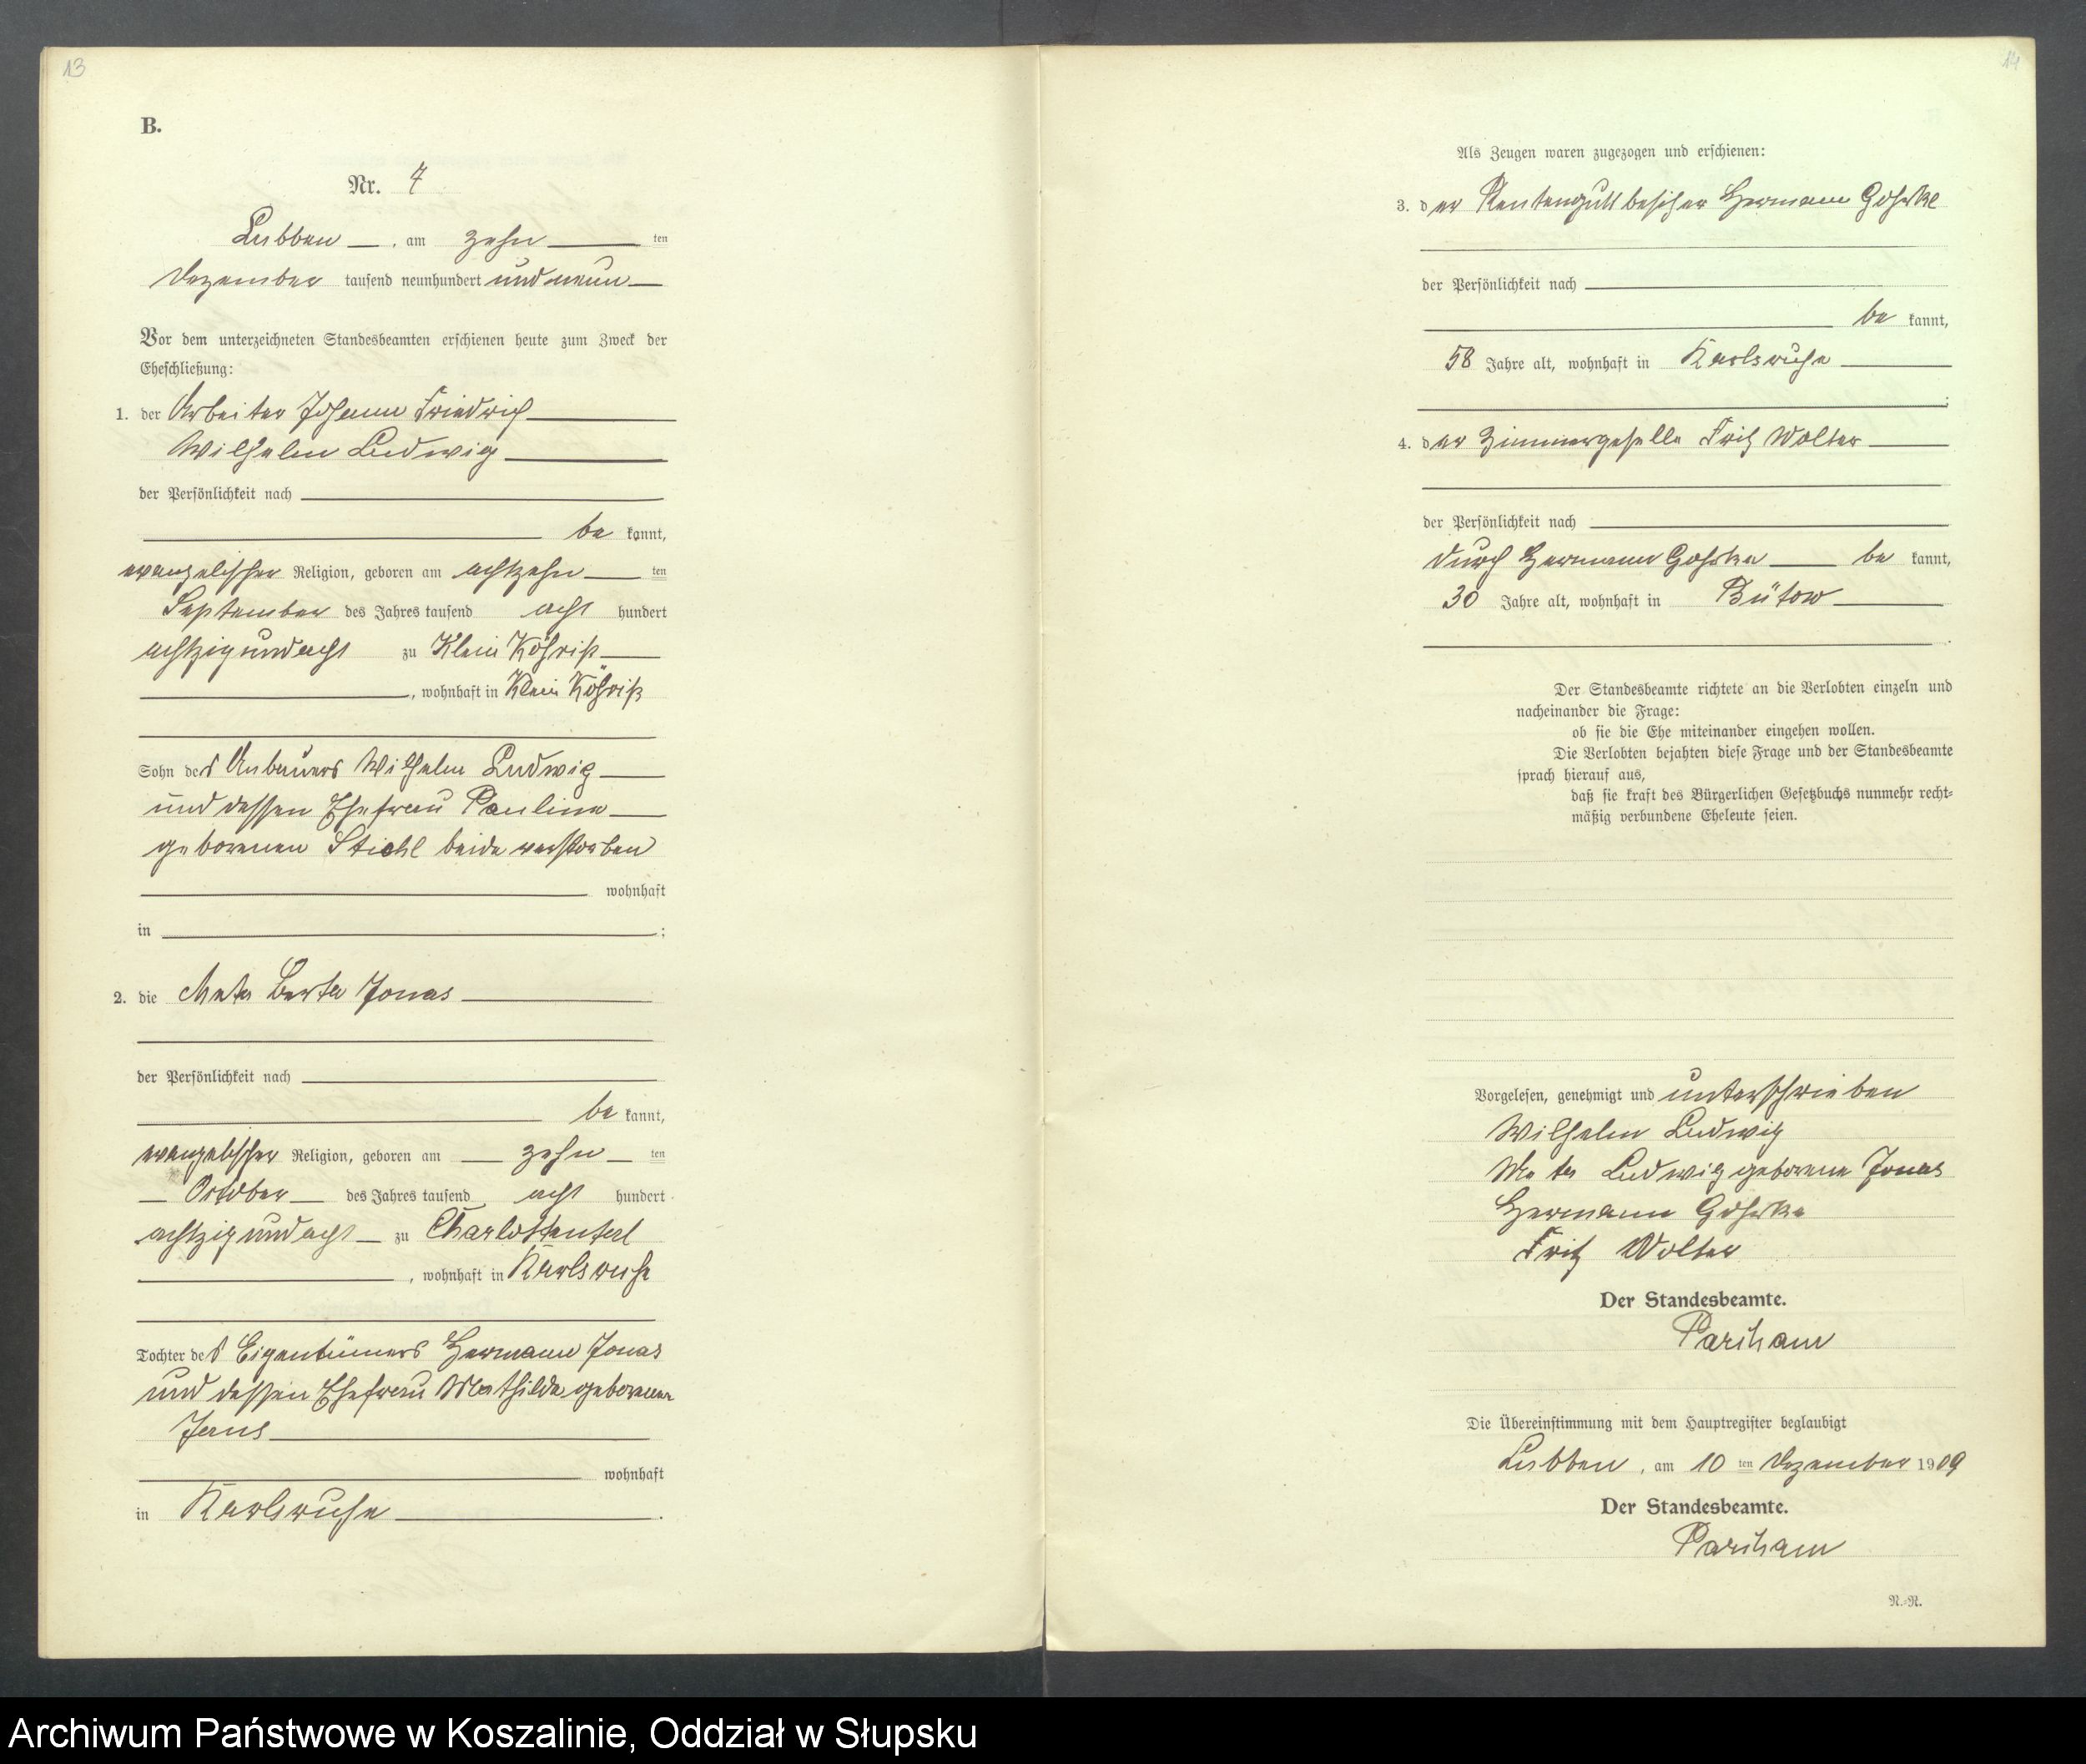 13
B.
Nr. 7
Lubben, am zehn ten
Dezember tausend neunhundert und neun
Vor dem unterzeichneten Standesbeamten erschienen heute zum Zweck der
Eheschließung:
1. der Arbeiter Johann Friedrich
Wilhelm Ludwig
der Persönlichkeit nach
be kannt,
evangelischer Religion, geboren am achtzehn ten
September des Jahres tausend acht hundert
achtzig und acht zu Klein
, wohnhaft in Klein
Sohn des Anbauers Wilhelm Ludwig
und dessen Ehefrau Pauline
geborenen Stiehl beide verstorben
wohnhaft
in ;
2. die Meta Berta Jonas
der Persönlichkeit nach
be kannt,
evangelischer Religion, geboren am zehn ten
October des Jahres tausend acht hundert
achtzig und acht zu
, wohnhaft in Karlsruhe
Tochter des Eigentümers Hermann Jonas
und dessen Ehefrau Mathilde geborenen
wohnhaft
in Karlsruhe.
14
Als Zeugen waren zugezogen und erschienen:
3. der Rentengutsbesitzer Hermann Gohrke
der Persönlichkeit nach
be kannt,
58 Jahre alt, wohnhaft in Karlsruhe
;
4. der Zimmergeselle Fritz Wolter
der Persönlichkeit nach
durch Hermann Gohrke be kannt,
30 Jahre alt, wohnhaft in Bütow
.
Der Standesbeamte richtete an die Verlobten einzeln und
nacheinander die Frage:
ob sie die Ehe miteinander eingehen wollen.
Die Verlobten bejahten diese Frage und der Standesbeamte
sprach hierauf aus,
daß sie kraft des Bürgerlichen Gesetzbuchs nunmehr recht-
mäßig verbundene Eheleute seien.
Vorgelesen, genehmigt und unterschrieben
Wilhelm Ludwig
Meta Ludwig geborene Jonas
Hermann Gohrke
Fritz Wolter
Der Standesbeamte.
Die Übereinstimmung mit dem Hauptregister beglaubigt
Lubben, am 10 ten Dezember 1909
Der Standesbeamte.
N.-N.
Archiwum Państwowe w Koszalinie, Oddział w Słupsku